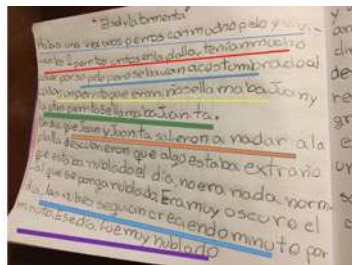 "El dia de la tormenta"
Habia una vez unos perros con mucho pelo y vivi-
an los 2 perritos juntos en la dolla. tenian mucho
calor por so pelo pero se havian acostumbrado al
calor. un perrito que era niño se llamaba Juan y
la otra perrita se llamaba Juanta.
Un dia que Juan y Juanta salieron a nadar a la
dolla descubrieron que algo estaba extraño
que estaba nublado el día, no era nada norm-
al que se ponga nublado. Era muy oscuro el
día, las nubes seguian creciendo minuto por
minuto. Ese día fue muy nublado